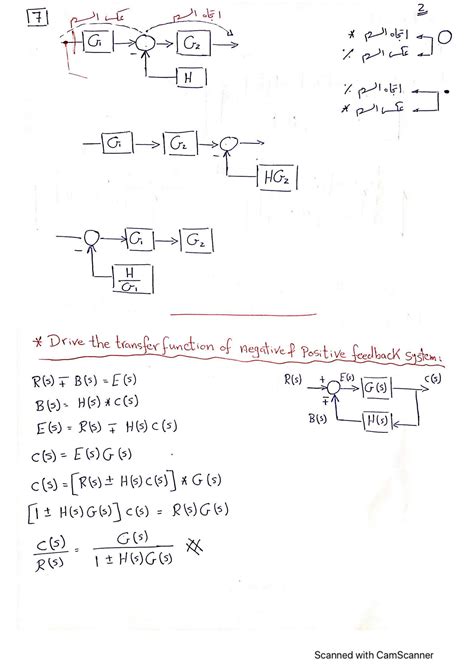 7
عكس السهم
اتجاه السهم
2
G1
G2
H
-
اتجاه السهم *
عكس السهم ٪
اتجاه السهم ٪
عكس السهم *
G1
G2
-
HG2
G1
G2
-
H
G1
* Drive the transfer function of negative & Positive feedback system:
R(s) ∓ B(s) = E(s)
B(s) = H(s) * C(s)
E(s) = R(s) ∓ H(s) C(s)
C(s) = E(s) G(s)
C(s) = [R(s) ± H(s) C(s)] * G(s)
[1 ± H(s) G(s)] C(s) = R(s) G(s)
C(s) / R(s) = G(s) / 1 ± H(s) G(s)
R(s) + E(s) G(s) C(s)
∓
B(s) H(s)
Scanned with CamScanner